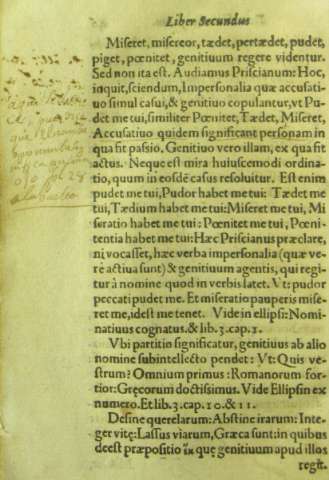 Liber Secundus
Miseret, misereor, tædet, pertædet, pudet,
piget, pœnitet, genitiuum regere videntur.
Sed non ita est. Audiamus Priscianum: Hoc,
inquit, sciendum, Impersonalia quæ accusati-
uo simul casui, & genitiuo copulantur, vt Pu-
det me tui, similiter Pœnitet, Tædet, Miseret,
Accusatiuo quidem significant personam in
qua fit passio. Genitiuo vero illam, ex qua fit
actus. Neque est mira huiuscemodi ordina-
tio, quum in eosdē casus resoluitur. Est enim
pudet me tui, Pudor habet me tui: Tædet me
tui, Tædium habet me tui: Miseret me tui, Mi
seratio habet me tui: Pœnitet me tui, Pœni-
tentia habet me tui: Hæc Priscianus præclare,
ni vocasset, hæc verba impersonalia (quæ ve-
rè actiua sunt) & genitiuum agentis, qui regi-
tur à nomine quod in verbis latet. Vt: pudor
peccati pudet me. Et miseratio pauperis mise-
ret me, idest me tenet. Vide in ellipsi: Nomi-
natiuus cognatus. & lib. 3. cap. 1.
Vbi partitio significatur, genitiuus ab alio
nomine subintellecto pendet: Vt: Quis ve-
strum? Omnium primus: Romanorum for-
tior: Gręcorum doctissimus. Vide Ellipsin ex
numero. Et lib. 3. cap. 10. & 11.
Desine querelarum: Abstine irarum: Inte-
ger vitę: Lassus viarum, Græca sunt: in quibus
deest præpositio ἐκ quę genitiuum apud illos
regit.